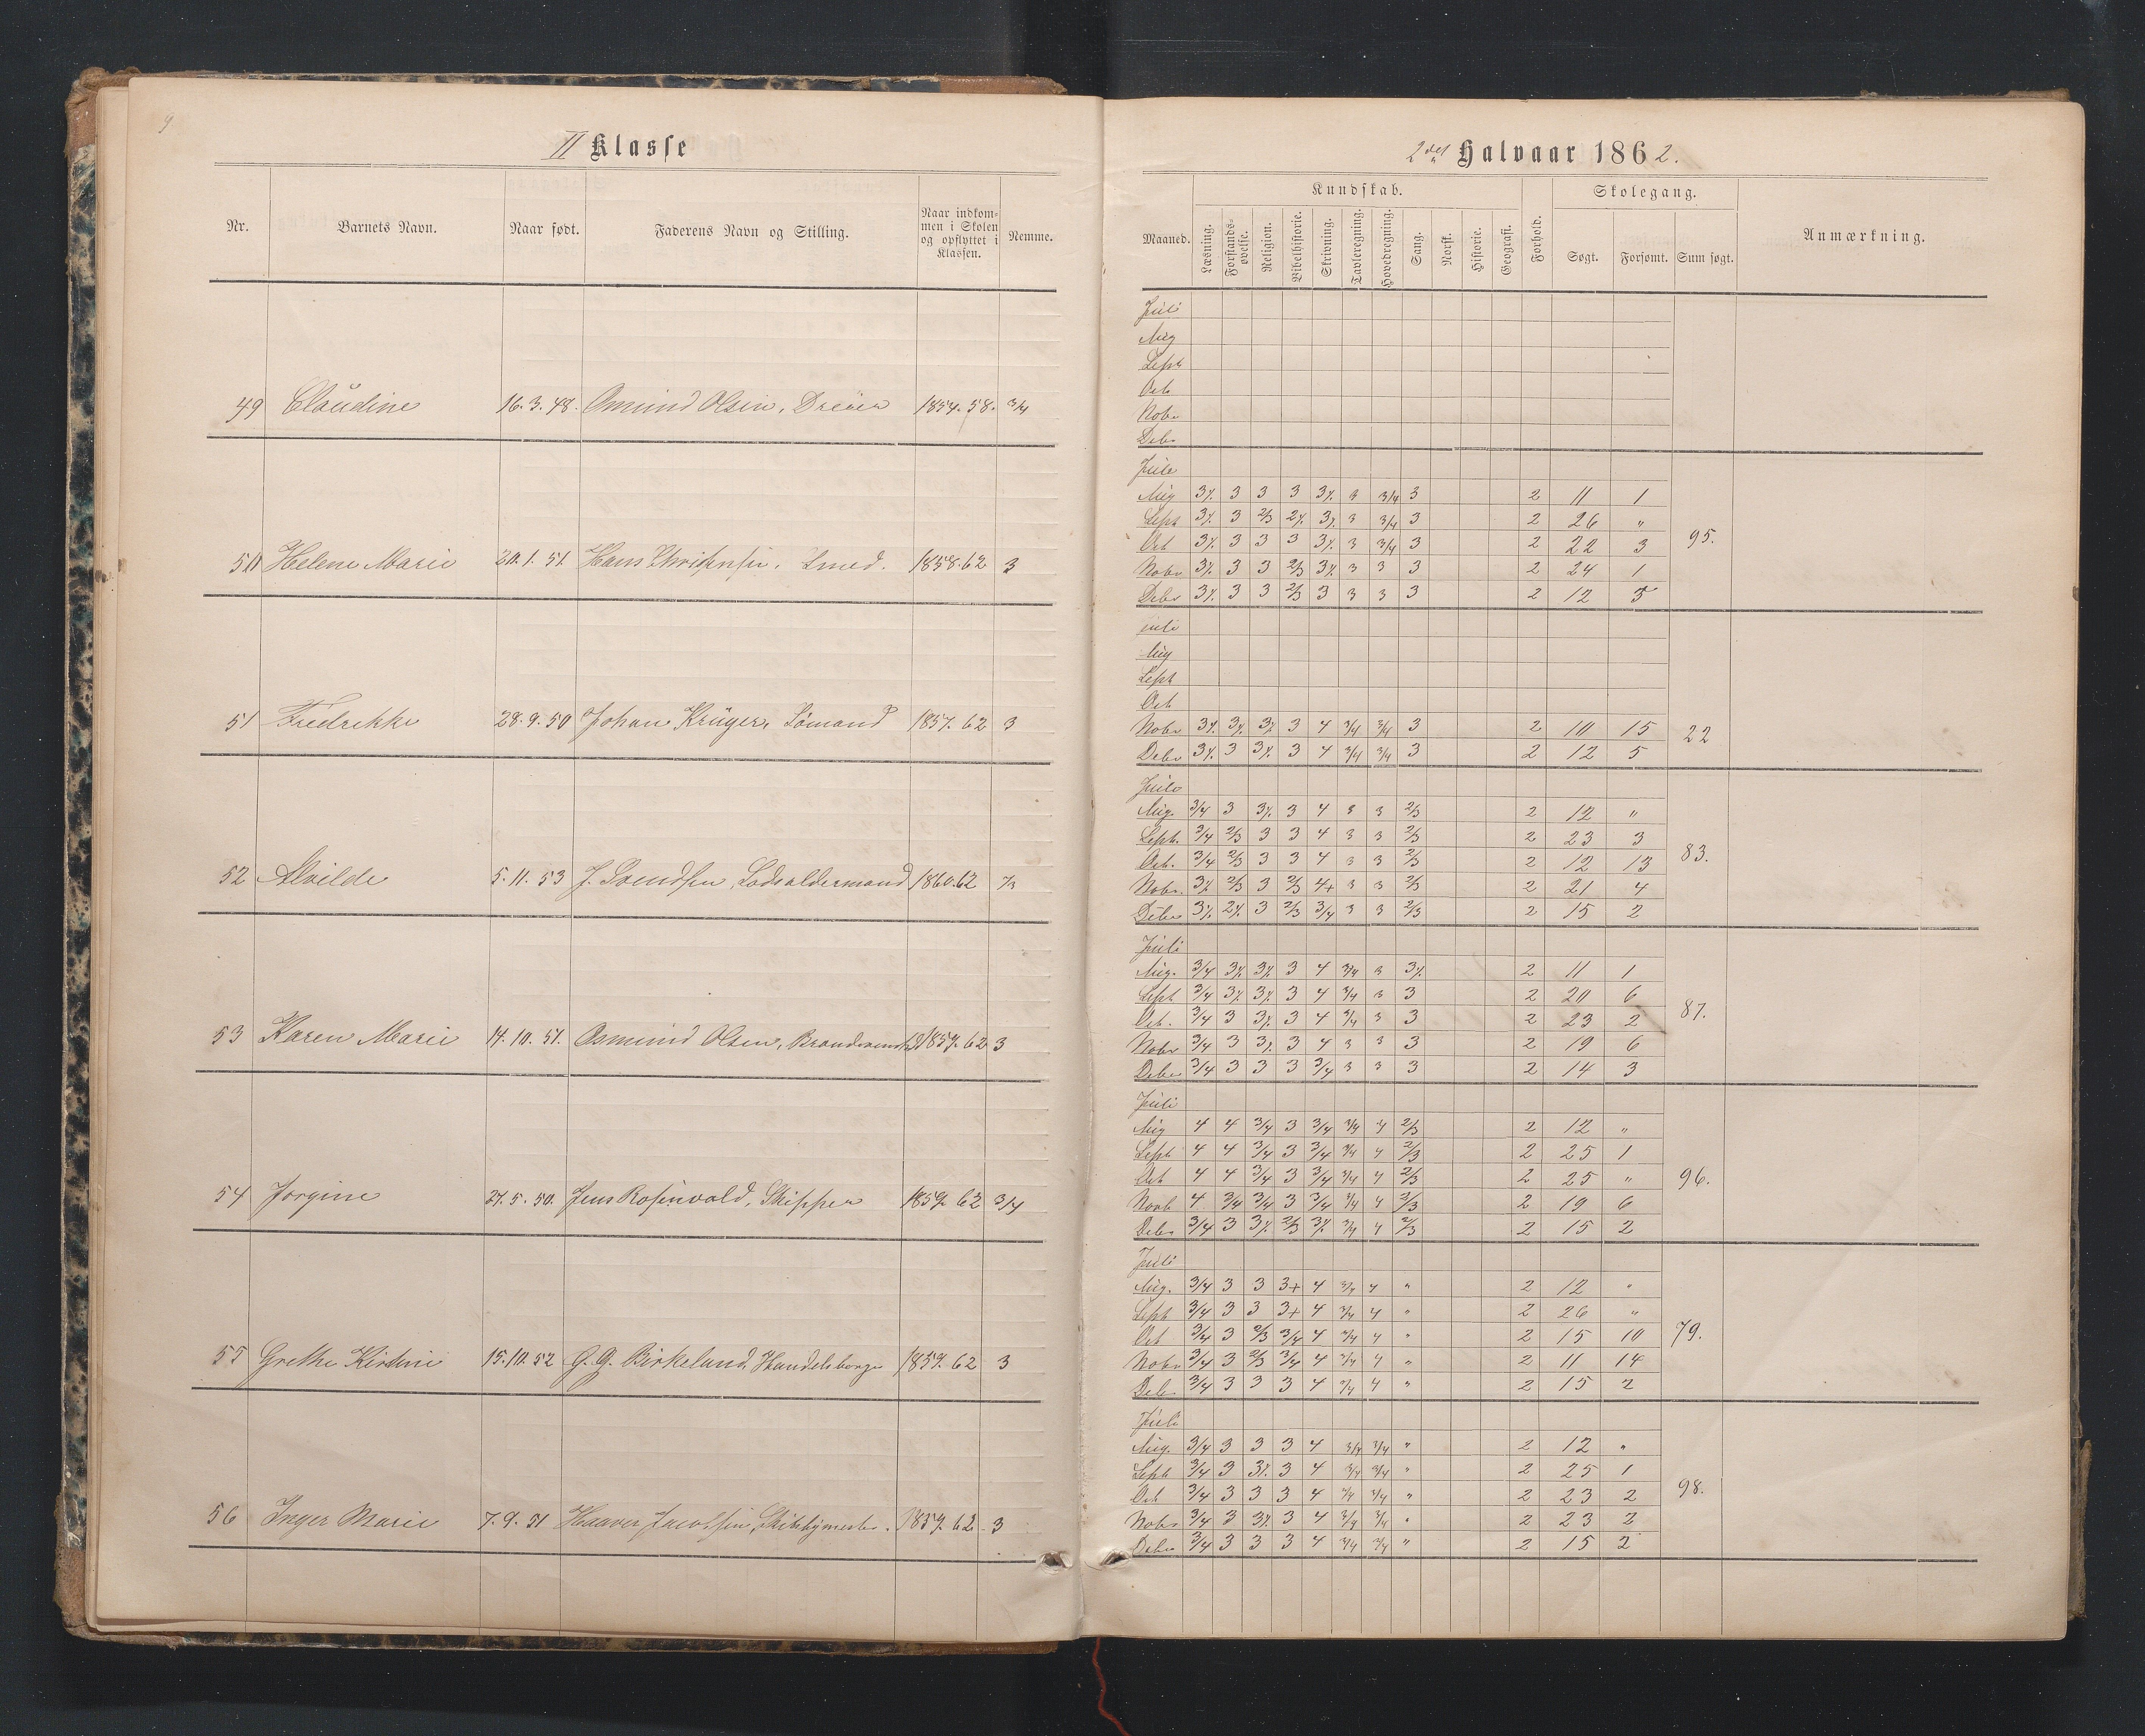 9
II Klasse
Nr. Barnets Navn. Naar født. Faderens Navn og Stilling. Naar indkommen i Skolen og opflyttet i Klassen. Nemme.
49 Claudine 16. 3. 48. Osmund Olsen, 1854. 58. 3/4
50 Helene Marie 20. 1. 51. Hans Christensen. Smed. 1858. 62 3
51 Fredrikke 28. 9. 50 Johan Krüger, Sømand 1857. 62 3
52 Alvilde 5. 11. 53 J. Svendsen, Lodsoldermand 1860. 62
53 Karen Marie 14. 10. 51. Osmund Olsen, 1859. 62 3
54 Jorgine 27. 5. 50. Jens Rosenvold, Skipper 1859. 62 3/4
55 Grethe Kirstine 15. 10. 52 G. G. Birkeland, Handelsborger 1859. 62 3
56 Inger Marie 7. 9. 51 Haaver Jacobsen, 1859. 62. 3
2det Halvaar 1862.
Kundskab. Skolegang.
Maaned. Læsning. Forstands-øvelse. Religion. Bibelhistorie. Skrivning. Tavleregning. Hovedregning. Sang. Norsk. Historie. Geografi. Forhold. Søgt. Forsømt. Sum søgt. Anmærkning.
Juli
Aug
Sept
Oct
Nobr
Debr
Juli
Aug 3% 3 3 3 3% 3 3/4 3 2 11 1
Sept 3% 3 2/3 2% 3% 3 3/4 3 2 26 "
Oct 3% 3 3 3 3% 3 3/4 3 2 22 3 95.
Nobr 3% 3 3 2/3 3% 3 3 3 2 24 1
Debr 3% 3 3 2/3 3 3 3 3 2 12 5
Juli
Aug
Sept
Oct
Nobr 3% 3% 3% 3 4 3/4 3/4 3 2 10 15 22
Debr 3% 3 3% 3 4 3/4 3/4 3 2 12 5
Juli
Aug. 3/4 3 3% 3 4 3 3 2/3 2 12 "
Sept. 3/4 2/3 3 3 4 3 3 2/3 2 23 3
Oct. 3/4 2/3 3 3 4 3 3 2/3 2 12 13 83.
Nobr. 3% 2/3 3 2/3 4+ 3 3 2/3 2 21 4
Debr 3% 2% 3 2/3 3/4 3 3 2/3 2 15 2
Juli
Aug. 3/4 3% 3% 3 4 3/4 3 3% 2 11 1
Sept 3/4 3% 3% 3 4 3/4 3 3 2 20 6
Oct. 3/4 3 3% 3 4 3/4 3 3 2 23 2 87.
Nobr 3/4 3 3% 3 4 3 3 3 2 19 6
Debr 3/4 3 3 3 3/4 3 3 3 2 14 3
Juli
Aug 4 4 3/4 3 3/4 3/4 4 2/3 2 12 "
Sept 4 4 3/4 3 3/4 3/4 4 2/3 2 25 1
Oct 4 4 3/4 3 3/4 3/4 4 2/3 2 25 " 96.
Novb 4 3/4 3/4 3 3/4 3/4 4 2/3 2 19 6
Debr 3/4 3 3% 2/3 3% 3/4 4 2/3 2 15 2
Juli
Aug. 3/4 3 3 3+ 4 3/4 4 " 2 12 "
Sept 3/4 3 3 3+ 4 3/4 4 " 2 26 "
Oct 3/4 3 2/3 3/4 4 3/4 4 " 2 15 10 79.
Nobr 3/4 3 2/3 3/4 4 3/4 4 " 2 11 14
Debr 3/4 3 3 3 4 3/4 4 " 2 15 2
Juli
Aug. 3/4 3 3 3 4 3/4 3/4 " 2 12 "
Sept 3/4 3 3% 3 4 3/4 3/4 " 2 25 1
Oct 3/4 3 3 3 4 3/4 3/4 " 2 23 2 98.
Nobr 3/4 3 3% 3 4 3/4 3/4 " 2 23 2
Debr 3/4 3 3 3 4 3/4 3/4 " 2 15 2